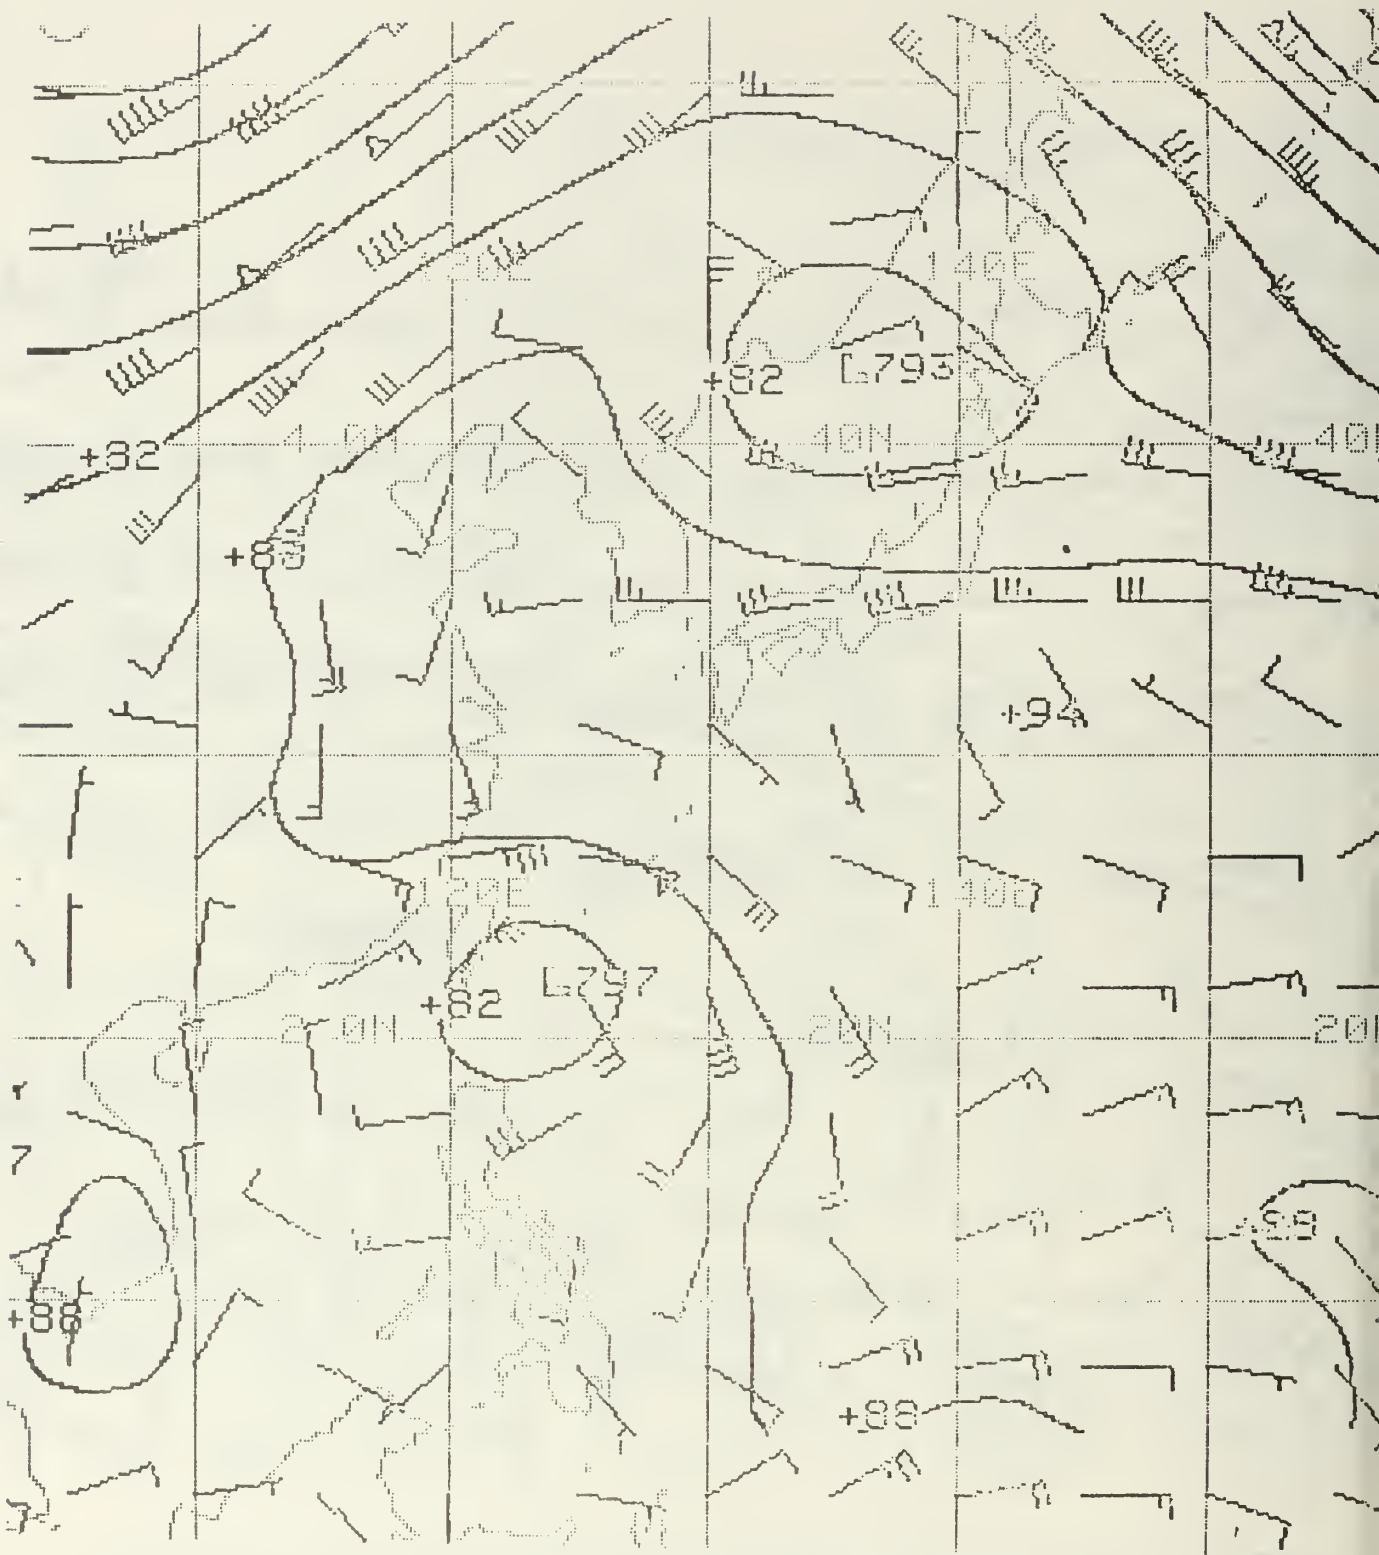 120E 140E
+82 L793
+82 40N 40N 40N
+83
+94
120E 140E
+82 L797
20N 20N 20N
7
+88
+88